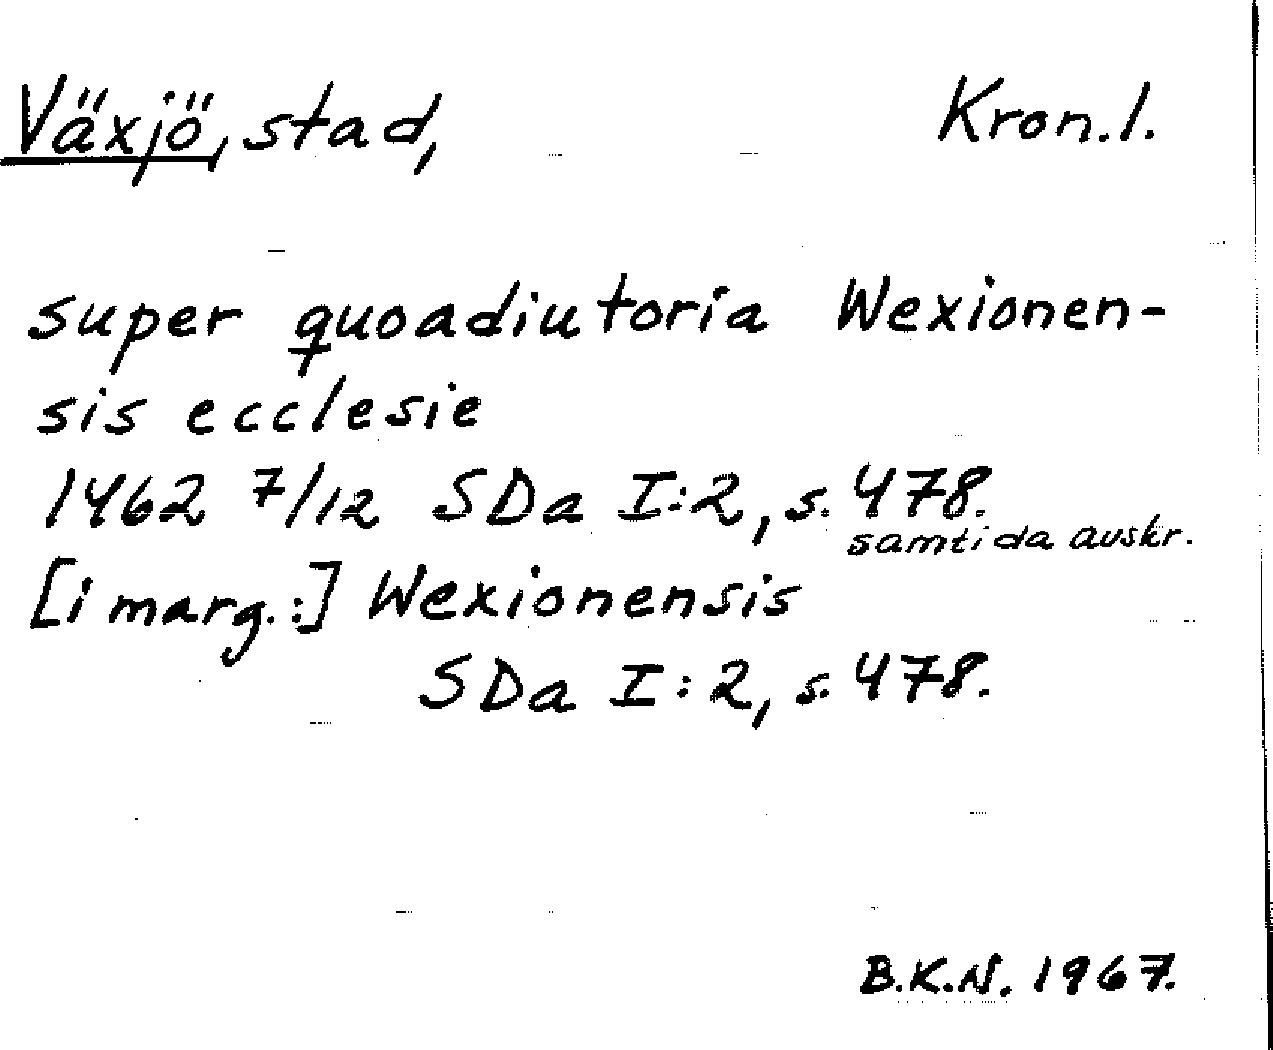 Växjö, stad, Kron.l.
super quoadiutoria Wexionen-
sis ecclesie
1462 7/12 SDa I:2, s. 478.
samtida avskr.
[i marg.:] Wexionensis
SDa I:2, s. 478.
B.K.N. 1967.